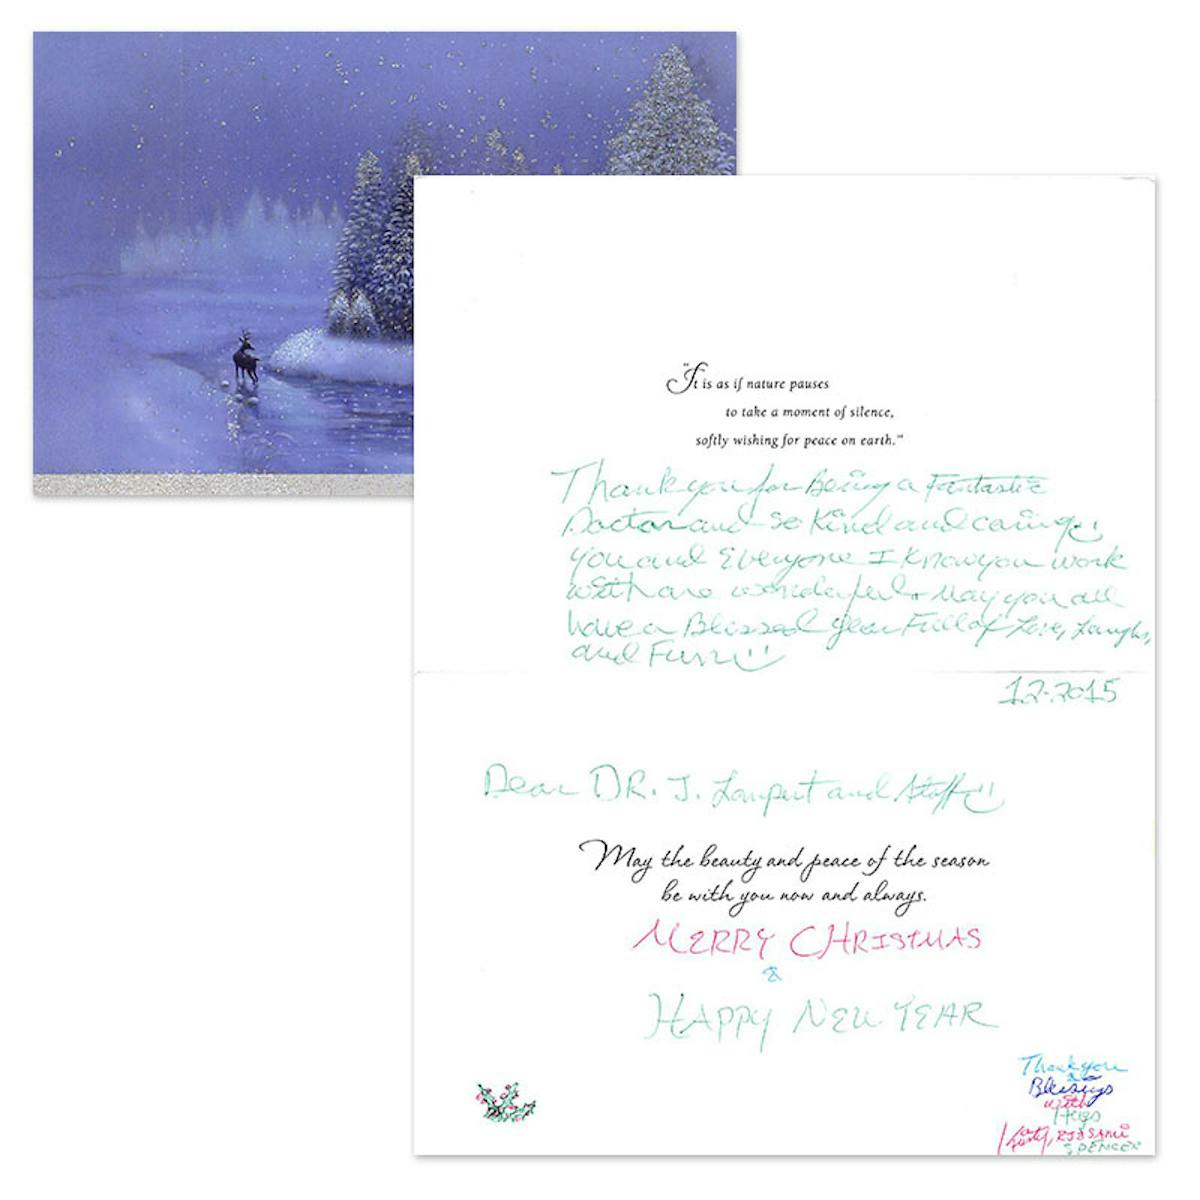 "It is as if nature pauses
to take a moment of silence,
softly wishing for peace on earth."
Thank you for Being a Fantastic
Doctor and so Kind and caring
you and Everyone I know you work
with are wonderful. May you all
have a Blessed year Full of Love, Laughs,
and Fun
12-2015
Dear DR. J. Lampert and Staff
May the beauty and peace of the season
be with you now and always.
MERRY CHRISTMAS
&
HAPPY NEW YEAR
Thank you
&
Blessings
with
Hugs
Kathy,
SPENCER